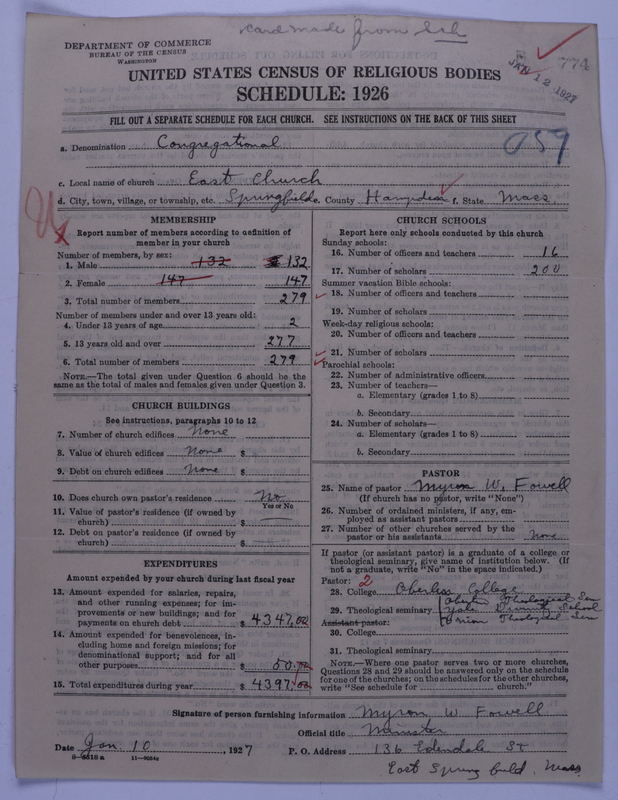 card made from Sch
DEPARTMENT OF COMMERCE
BUREAU OF THE CENSUS
WASHINGTON
774
JAN 12 1927
UNITED STATES CENSUS OF RELIGIOUS BODIES
SCHEDULE: 1926
FILL OUT A SEPARATE SCHEDULE FOR EACH CHURCH. SEE INSTRUCTIONS ON THE BACK OF THIS SHEET
059
a. Denomination Congregational
c. Local name of church East Church
d. City, town, village, or township, etc. Springfield e. County Hampden f. State Mass.
MEMBERSHIP
Report number of members according to definition of
member in your church
Number of members, by sex:
1. Male 132 132
2. Female 147 147
3. Total number of members 279
Number of members under and over 13 years old:
4. Under 13 years of age 2
5. 13 years old and over 277
6. Total number of members 279
NOTE.—The total given under Question 6 should be the
same as the total of males and females given under Question 3.
CHURCH BUILDINGS
See instructions, paragraphs 10 to 12
7. Number of church edifices None
8. Value of church edifices None $
9. Debt on church edifices None $
10. Does church own pastor's residence No
Yes or No
11. Value of pastor's residence (if owned by
church) $
12. Debt on pastor's residence (if owned by
church) $
EXPENDITURES
Amount expended by your church during last fiscal year
13. Amount expended for salaries, repairs,
and other running expenses; for im-
provements or new buildings; and for
payments on church debt $ 4347.00
14. Amount expended for benevolences, in-
cluding home and foreign missions; for
denominational support; and for all
other purposes $ 50.00
15. Total expenditures during year $ 4397.00
CHURCH SCHOOLS
Report here only schools conducted by this church
Sunday schools:
16. Number of officers and teachers 16
17. Number of scholars 200
Summer vacation Bible schools:
18. Number of officers and teachers
19. Number of scholars
Week-day religious schools:
20. Number of officers and teachers
21. Number of scholars
Parochial schools:
22. Number of administrative officers
23. Number of teachers—
a. Elementary (grades 1 to 8)
b. Secondary
24. Number of scholars—
a. Elementary (grades 1 to 8)
b. Secondary
PASTOR
25. Name of pastor Myron W. Fowell
(If church has no pastor, write "None")
26. Number of ordained ministers, if any, em-
ployed as assistant pastors
27. Number of other churches served by the
pastor or his assistants None
If pastor (or assistant pastor) is a graduate of a college or
theological seminary, give name of institution below. (If
not a graduate, write "No" in the space indicated.)
Pastor: 2
28. College Oberlin College
Oberlin Theological Sem
29. Theological seminary Yale Divinity School
Assistant pastor: Union Theological Sem
30. College
31. Theological seminary
NOTE.—Where one pastor serves two or more churches,
Questions 28 and 29 should be answered only on the schedule
for one of the churches; on the schedules for the other churches,
write "See schedule for church."
Signature of person furnishing information Myron W Fowell
Official title Minister
Date Jan 10, 1927 P. O. Address 136 Edendale St
East Springfield, Mass
11—9054a